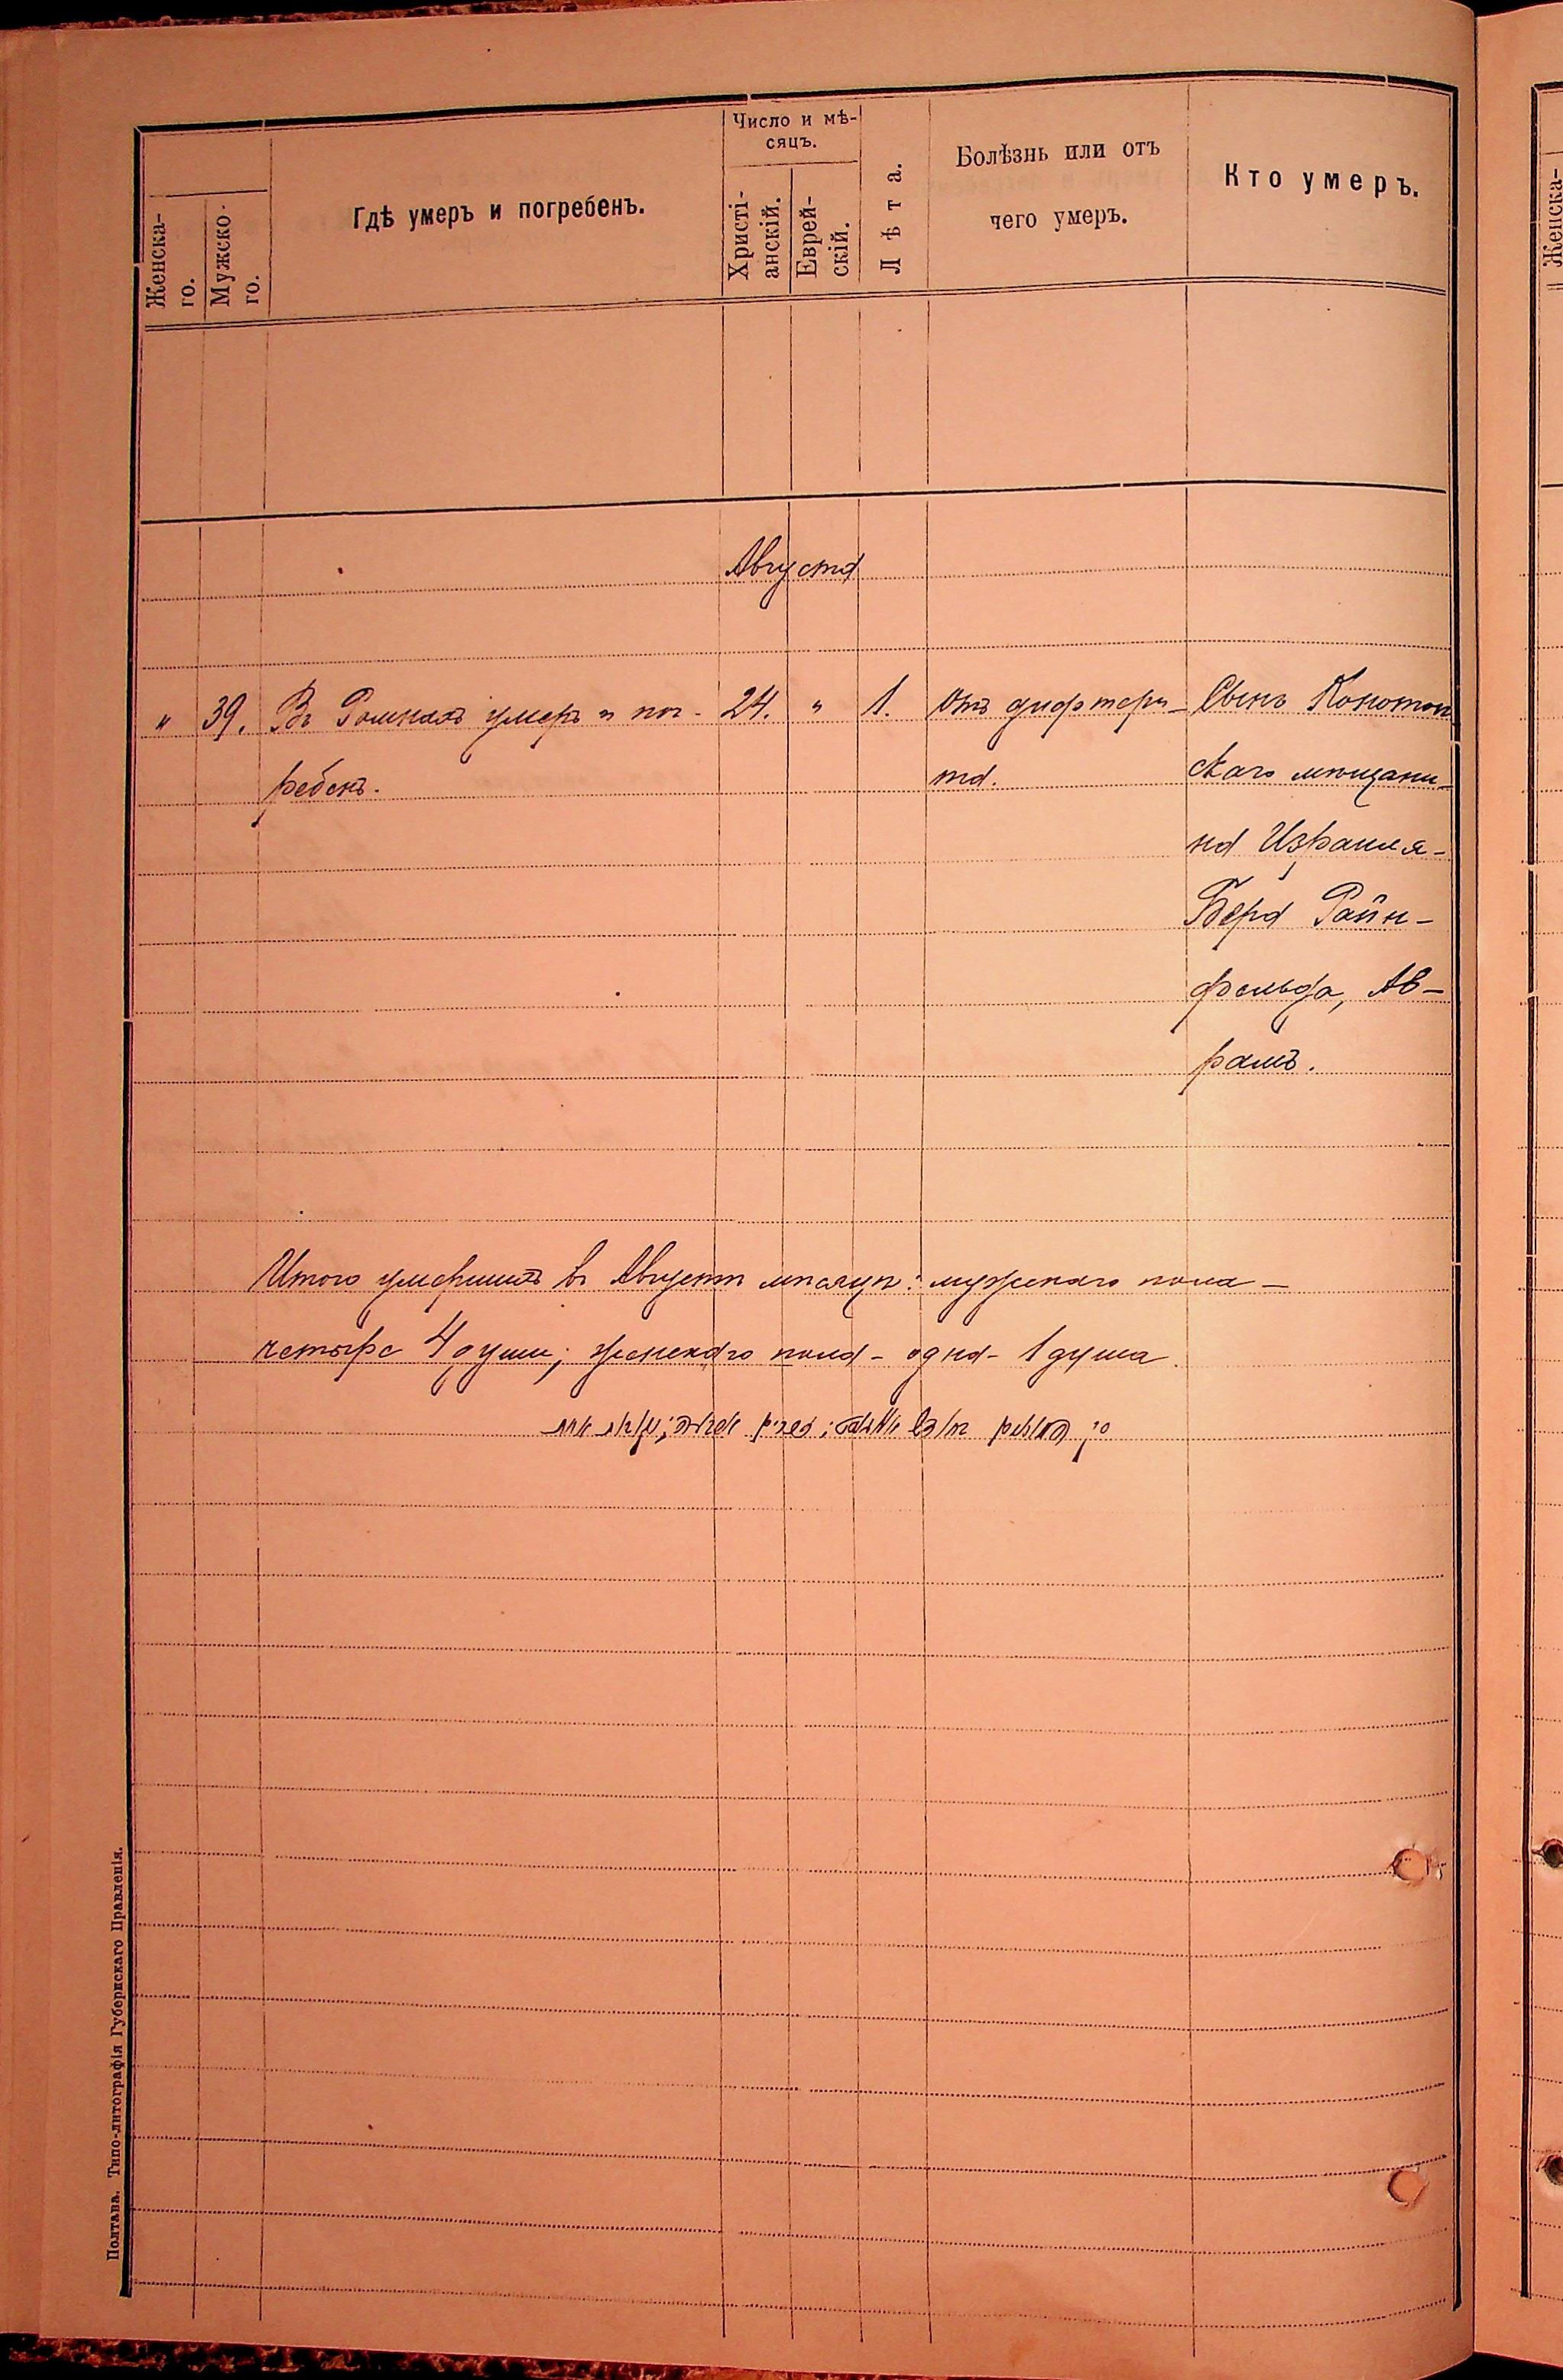 Число и мѣ-
сяцъ.
Женска-
го.
Мужско-
го.
Гдѣ умеръ и погребенъ.
Христі-
анскій.
Еврей-
скій.
Лѣта.
Болѣзнь или отъ
чего умеръ.
Кто умеръ.
Августа
" 39. Въ Ромнахъ умеръ и пог- 24. " 1. Отъ дифтери- Сынъ Конотоп
ребенъ. та. скаго мѣщани-
на Израиля-
Бера Райн-
фельда, Ав-
рамъ.
Итого умершихъ въ Августѣ мѣсяцѣ: мужскаго пола -
четыре 4 души; женскаго пола - одна - 1 душа.
Полтава. Типо-литографія Губернскаго Правленія.
Женска-